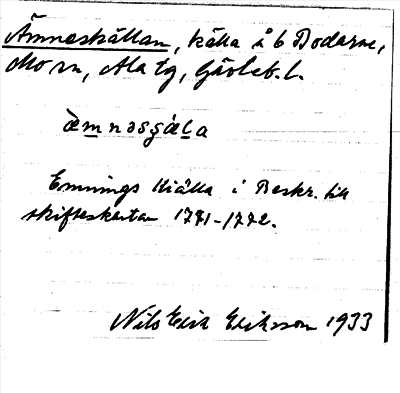 Ämneskällan, källa å 6 Bodarne,
Mo sn, Ala tg, Gävleb. l.
ǜmnəsɡ́äla
Emnings Kiälla i Beskr. till
skifteskartan 1771-1772.
Nils Erik Eriksson 1933